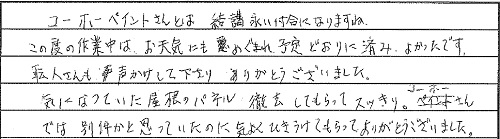 コーホーペイントさんとは 結講永い付合になりますね。
この度の作業中は、お天気にも愛めぐまれ予定どおりに済み、よかったです。
職人さんも声かけして下さり ありがとうございました。
気になっていた屋根のパネル 徹去してもらってスッキリ。コーホーさん
では 別件かと思っていたのに気よくひきうけてもらってありがとうございました。